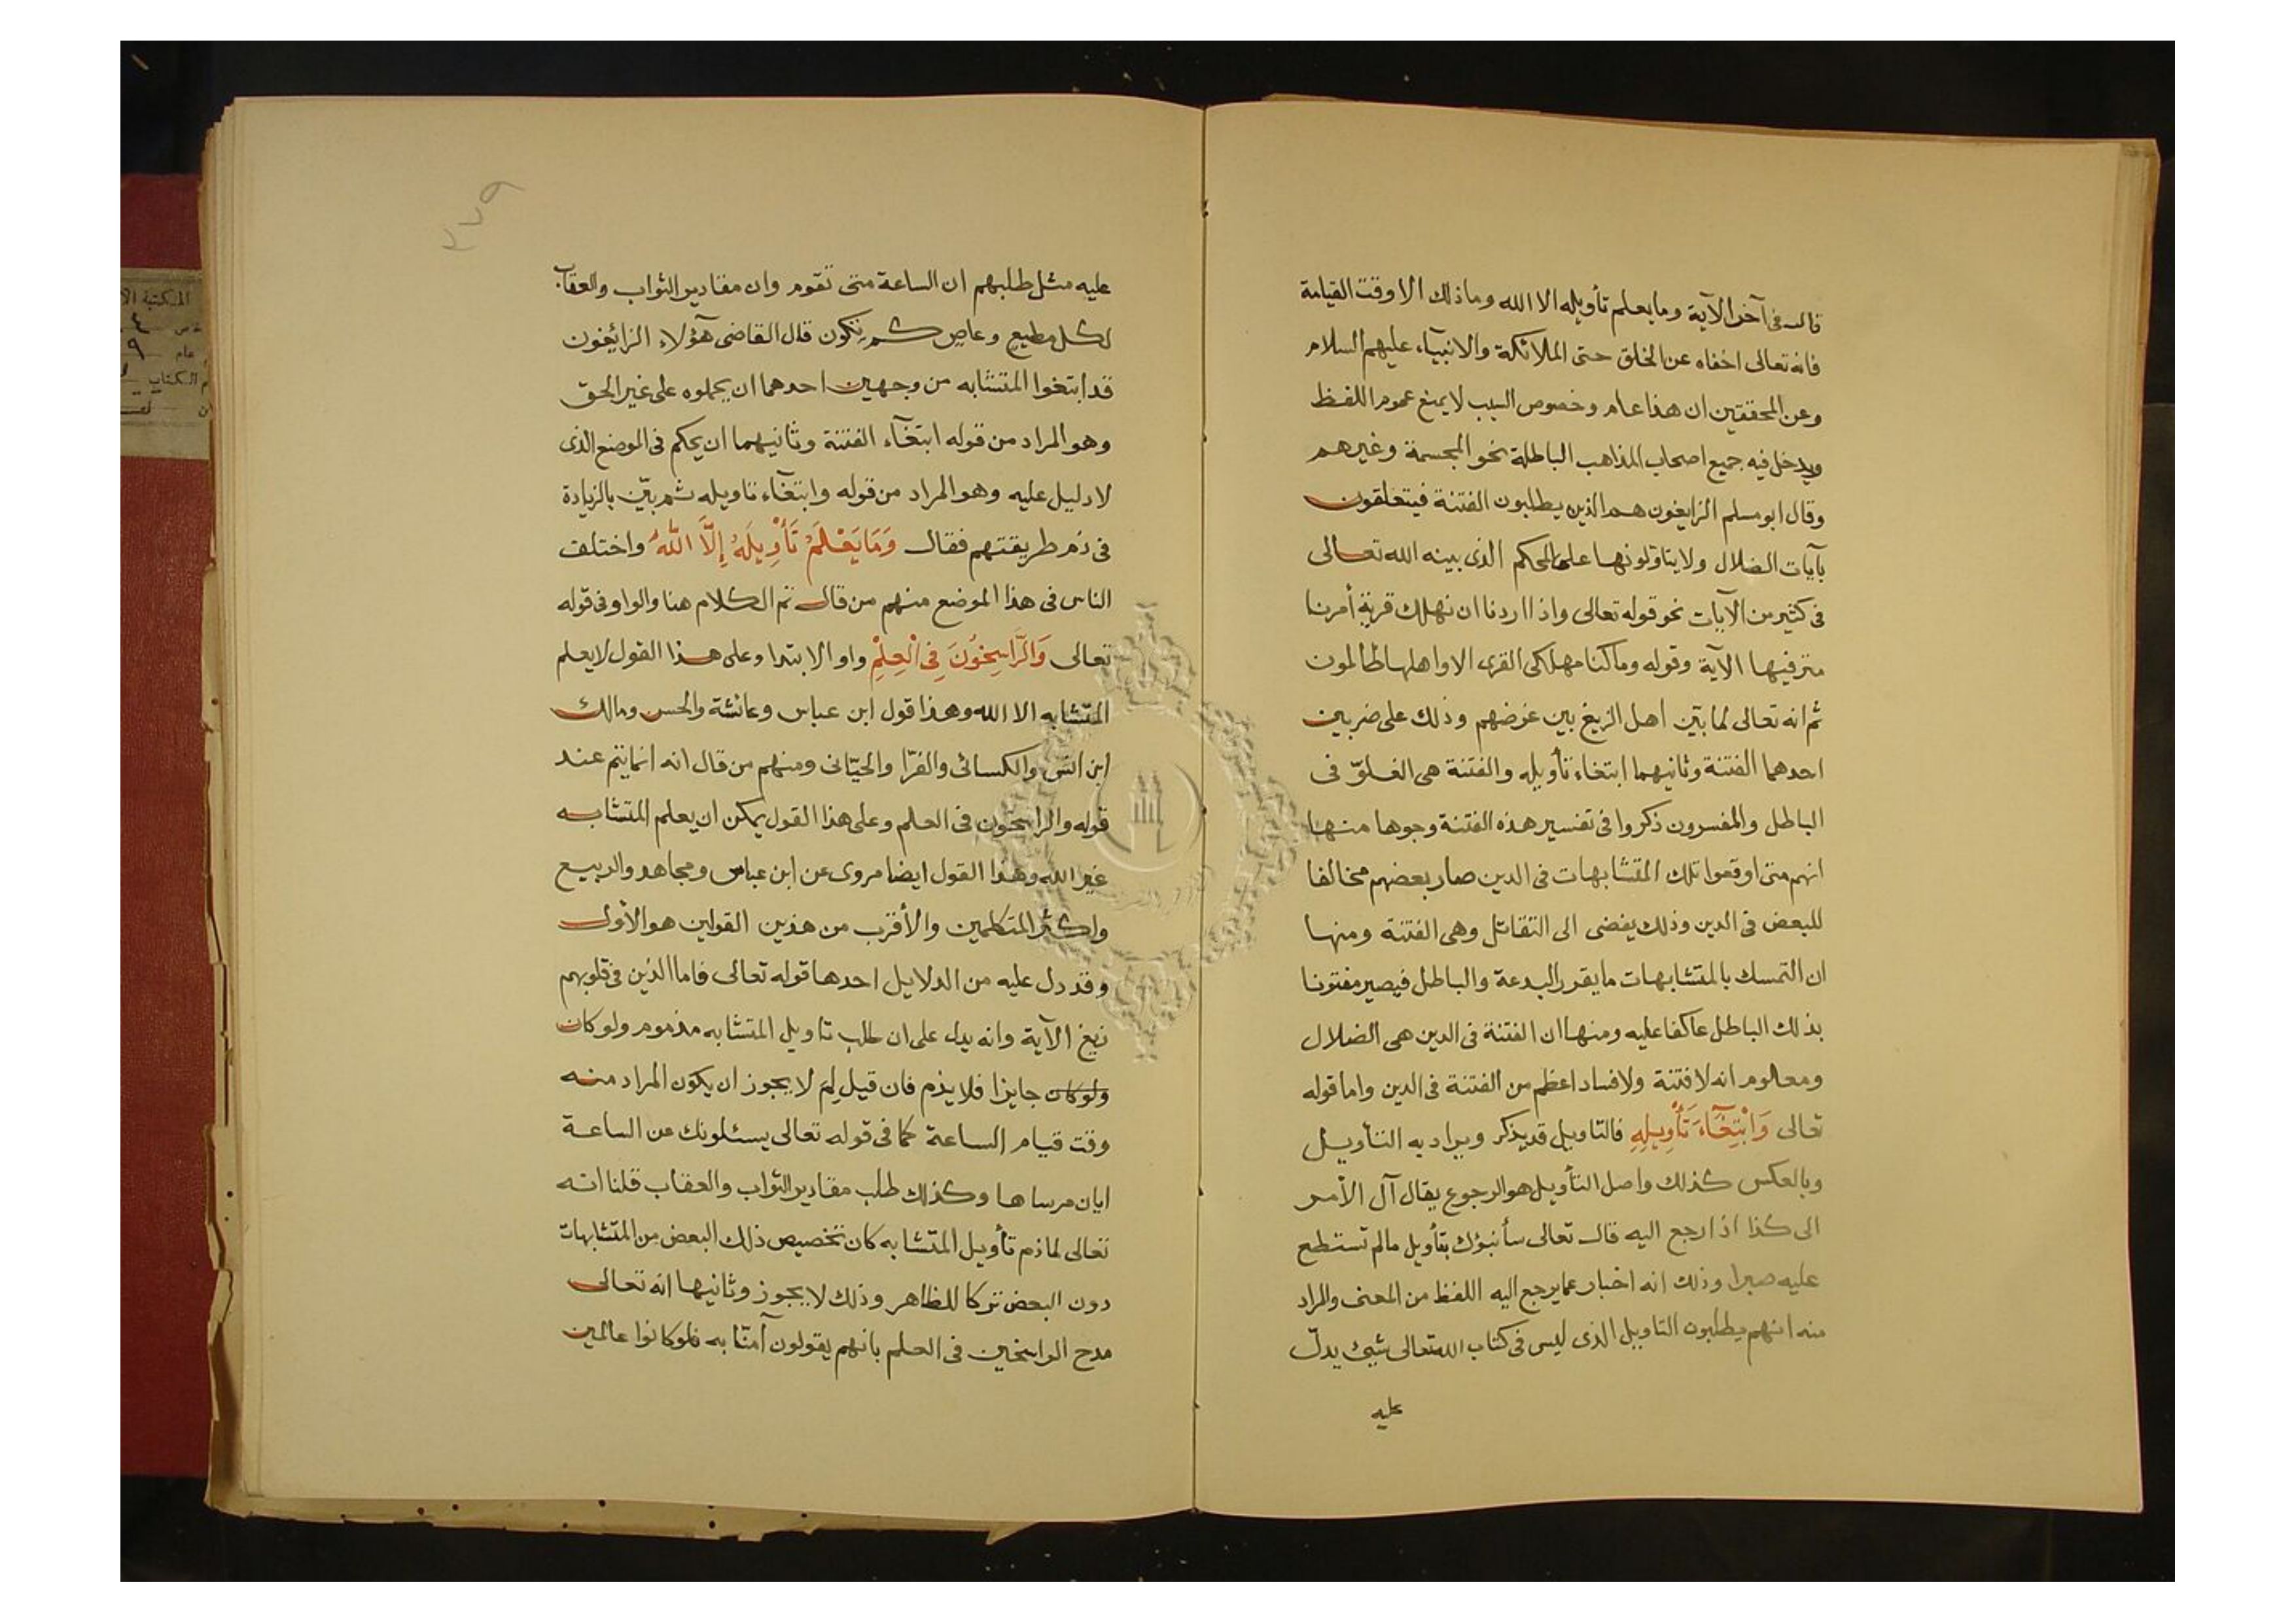 قال فى آخر الآية وما يعلم تأويله الا الله وما ذلك الا وقت القيامة
فانه تعالى اخفاه عن الخلق حتى الملائكة والانبيآء عليهم السلام
وعن المحققين ان هذا عام وخصوص السبب لا يمنع عموم اللفظ
ويدخل فيه جميع اصحاب المذاهب الباطلة نحو المجسمة وغيرهم
وقال ابو مسلم الزايغون هم الذين يطلبون الفتنة فيتعلقون
بآيات الضلال ولا يتاولونها على المحكم الذى بينه الله تعالى
فى كثير من الآيات نحو قوله تعالى واذا اردنا ان نهلك قرية أمرنا
مترفيها الآية وقوله وما كنا مهلكى القرى الا واهلها ظالمون
ثم انه تعالى لما بيّن اهل الزيغ بين غرضهم وذلك على ضربين
احدهما الفتنة وثانيهما ابتغاء تأويله والفتنة هى الغلوّ فى
الباطل والمفسرون ذكروا فى تفسير هذه الفتنة وجوها منها
انهم متى اوقعوا تلك المتشابهات فى الدين صار بعضهم مخالفا
للبعض فى الدين وذلك يفضى الى التقاتل وهى الفتنة ومنها
ان التمسك بالمتشابهات ما يقرر البدعة والباطل فيصير مفتونا
بذلك الباطل عاكفا عليه ومنها ان الفتنة فى الدين هى الضلال
ومعلوم انه لا فتنة ولا فساد اعظم من الفتنة فى الدين واما قوله
تعالى وَابْتِغَآءَ تَأْوِيلِهِ فالتاويل قد يذكر ويراد به التأويل
وبالعكس كذلك واصل التأويل هو الرجوع يقال آل الأمر
الى كذا اذا رجع اليه قال تعالى سأنبؤك بتأويل مالم تستطع
عليه صبرا وذلك انه اخبار عما يرجع اليه اللفظ من المعنى والمراد
منه انهم يطلبون التاويل الذى ليس فى كتاب الله تعالى شيئ يدلّ
عليه
٣٧٩
عليه مثل طلبهم ان الساعة متى تقوم وان مقادير الثواب والعقاب
لكل مطيع وعاص كم تكون قال القاضى هؤلاء الزائغون
قد ابتغوا المتشابه من وجهين احدهما ان يحملوه على غير الحق
وهو المراد من قوله ابتغآء الفتنة وثانيهما ان يحكم فى الموضع الذى
لا دليل عليه وهو المراد من قوله وابتغآء تاويله ثم بيّن بالزيادة
فى ذم طريقتهم فقال وَمَا يَعْلَمُ تَأْوِيلَهُ إِلَّا اللَّهُ واختلف
الناس فى هذا الموضع منهم من قال تم الكلام هنا والواو فى قوله
تعالى وَالرَّاسِخُونَ فِى الْعِلْمِ واو الابتدا وعلى هذا القول لا يعلم
المتشابه الا الله وهذا قول ابن عباس وعائشة والحسن ومالك
ابن انس والكسائى والفرّا والجبّائى ومنهم من قال انه انما يتم عند
قوله والراسخون فى العلم وعلى هذا القول يمكن ان يعلم المتشابه
غير الله وهذا القول ايضا مروى عن ابن عباس ومجاهد والربيع
واكثر المتكلمين والأقرب من هذين القولين هو الأول
وقد دل عليه من الدلايل احدها قوله تعالى فاما الذين فى قلوبهم
زيغ الآية وانه يدل على ان طلب تاويل المتشابه مذموم ولو كان
ولو كان جايزا فلا يذم فان قيل لِمَ لا يجوز ان يكون المراد منه
وقت قيام الساعة كما فى قوله تعالى يسئلونك عن الساعة
ايان مرساها وكذلك طلب مقادير الثواب والعقاب قلنا انه
تعالى لما ذم تأويل المتشابه كان تخصيص ذلك البعض من المتشابهات
دون البعض تركا للظاهر وذلك لا يجوز وثانيها انه تعالى
مدح الراسخين فى العلم بانهم يقولون آمنّا به فلو كانوا عالمين